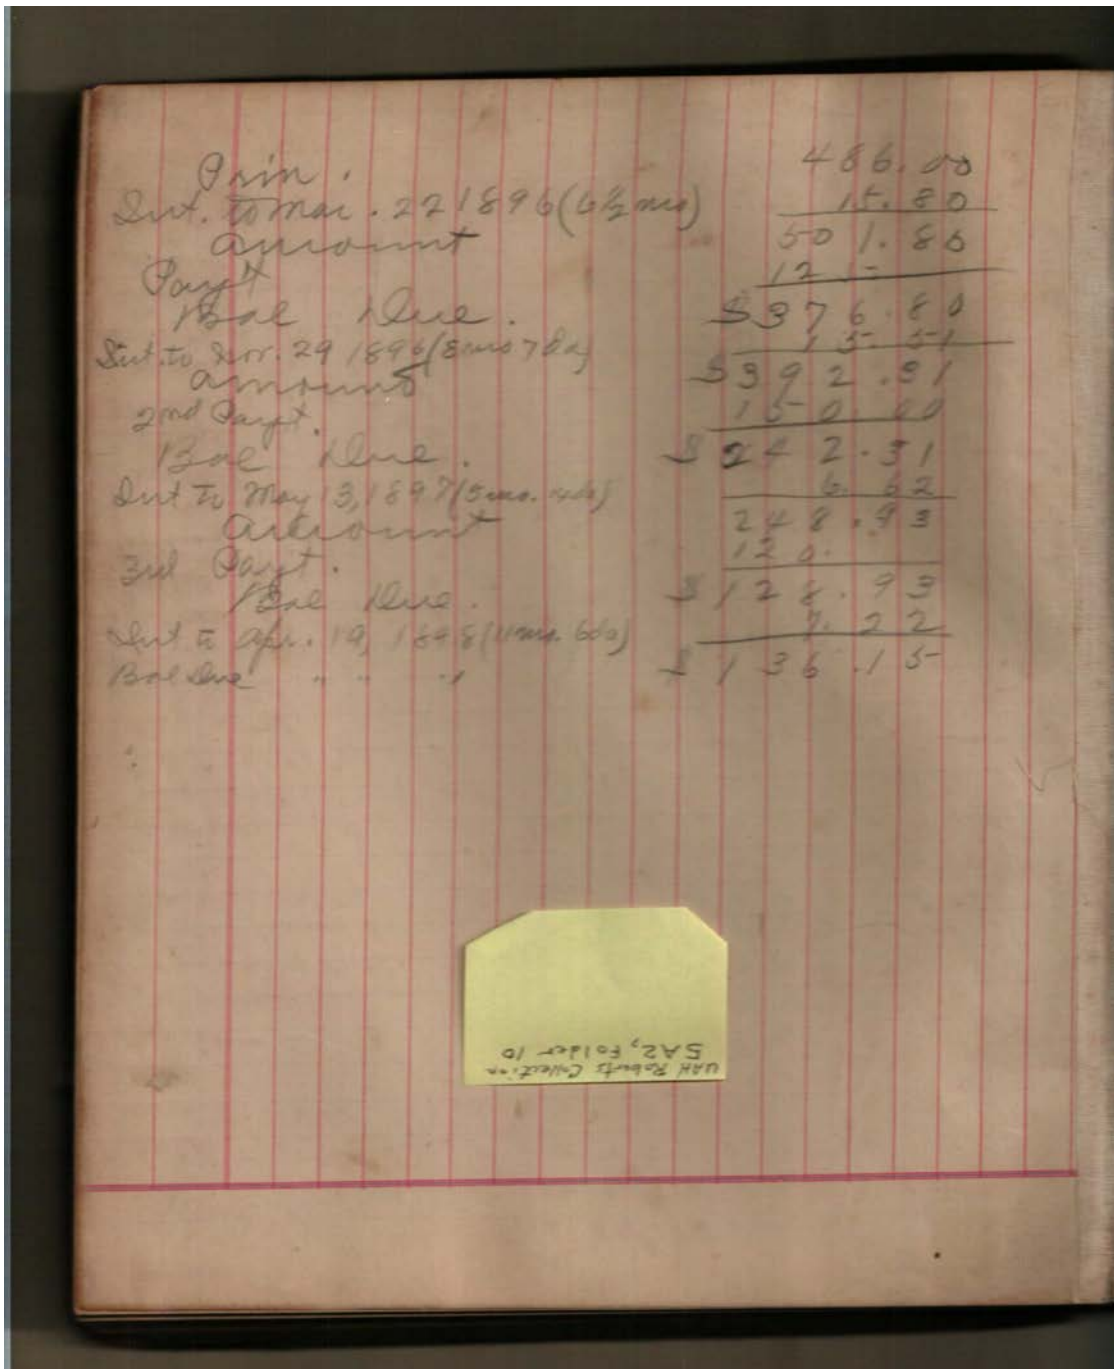 Prin. 486.00
Int. to Mar. 22 1896 (6½ mo) 15.80
Amount 501.80
Payt 125
Bal Due. $376.80
Int. to Nov. 29 1896 (8 mo 7 da) 15.51
Amount $392.31
2nd Payt. 150.00
Bal Due. $242.31
Int to May 13, 1897 (5 mo. 14 da) 6.62
Amount 248.93
3rd Payt. 120.
Bal Due. $128.93
Int to Apr. 19, 1898 (11 mo. 6 da) 7.22
Bal Due " " " $136.15
UAH Roberts Collection
5A2, Folder 10